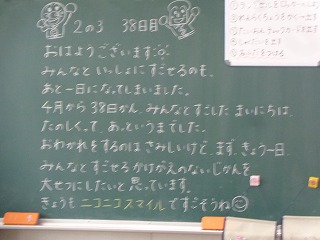 2の3 38日目
おはようございます
みんなと いっしょに すごせるのも、
あと一日になってしまいました。
4月から38日かん、みんなとすごした まいにちは、
たのしくて、あっというまでした。
おわかれをするのは さみしいけど、まず、きょう一日、
みんなとすごせる かけがえのない じかんを
大せつにしたいと思っています。
きょうも ニコニコスマイルで すごそうね